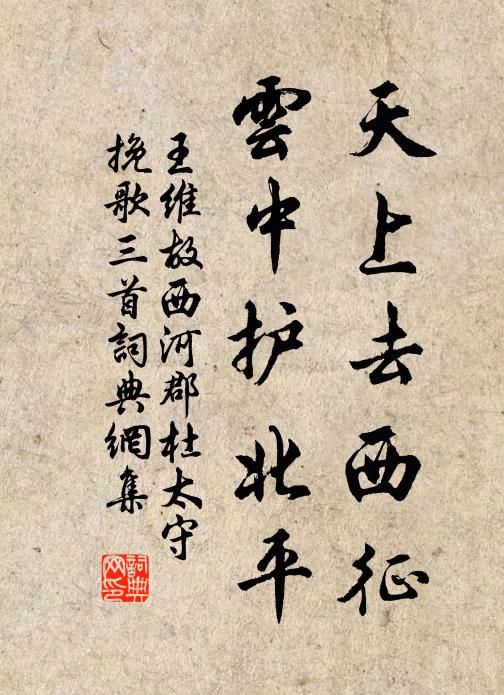 天上去西征
雲中护北平
王維故西河郡杜太守
挽歌三首詞典網集
詞典
网印